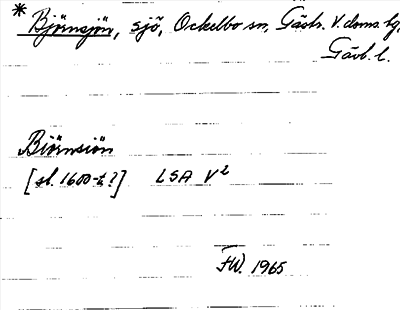 * Björnsjön, sjö, Ockelbo sn, Gästr. V. doms. hg,
Gävl. l.
Biörnsiön
[sl. 1600-t?] LSA V2
FW. 1965